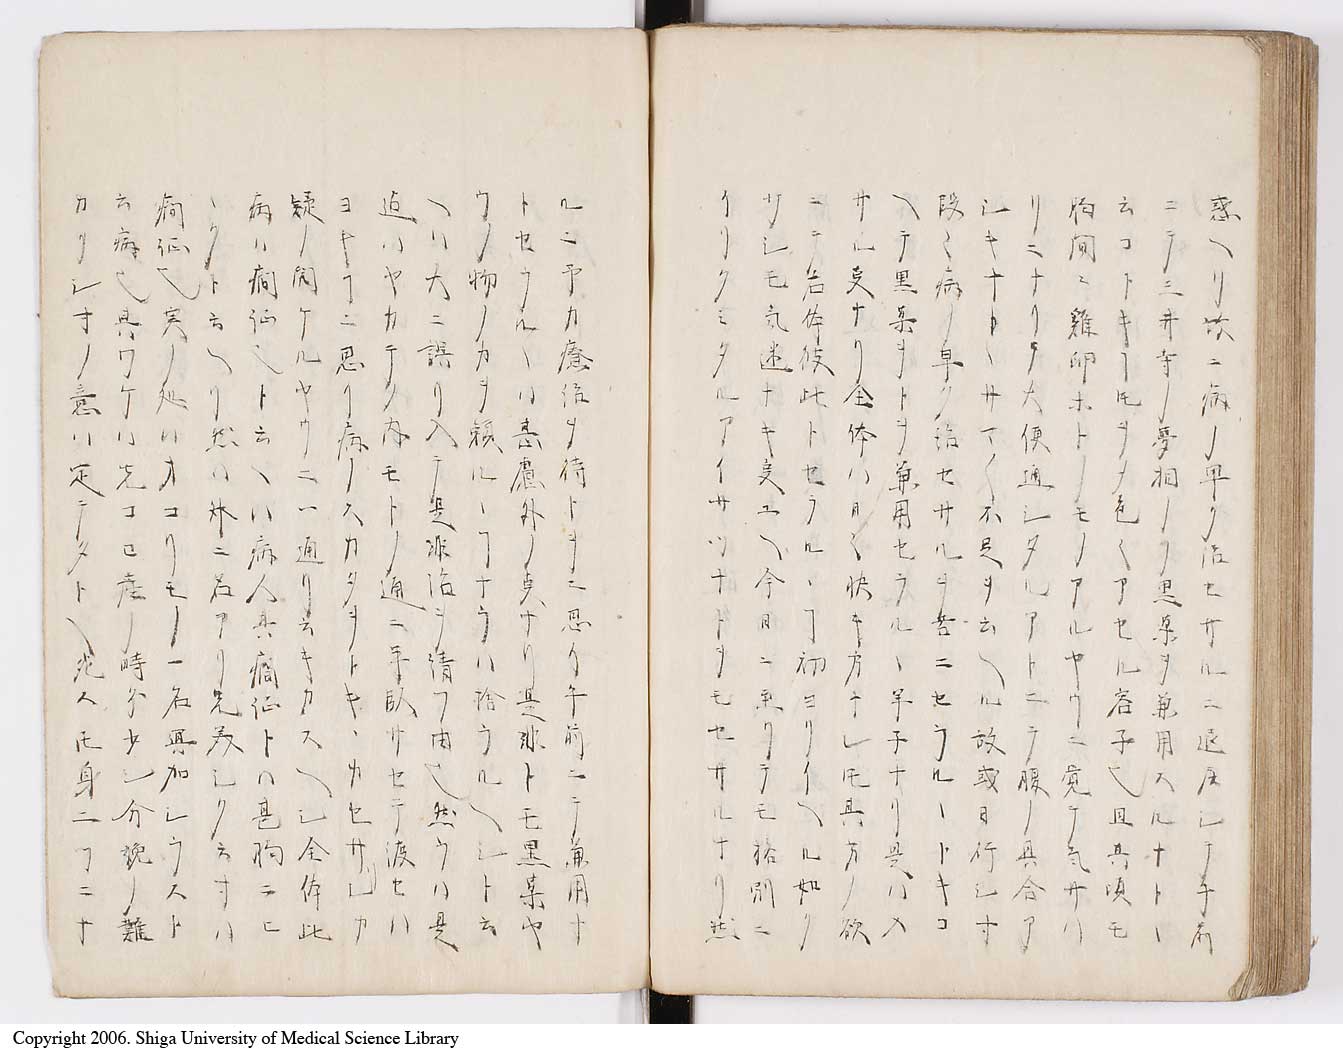 惑ヘリ故ニ病ノ早ク治セサルニ退屈シテ手前
ニテ三井寺ノ夢相ノク黒薬ヲ兼用スルナトヽ
云コトキヿ𪜈ヲタ色〱アセル容子也且其頃モ
胸間ニ雞卵ホトノモノアルヤウニ覚テ気サハ
リニナリタ大便通シタルアトニテ腹ノ具合ア
シキナトヽサマ〱不足ヲ云ヘル故或日行シ寸
段々病ノ早ク治セサルヲ苦ニセラルヽトキコ
ヘテ黒薬ヲトヲ兼用セラルヽ羊子ナリ是ハ入
サル叓ナリ全体ハ日〱快キ方ナレ𪜈其方ノ欲
ニテ右体彼此トセラルヽヿ初ヨリイヘル如ク
サシモ気遣ナキ叓ユヘ今日ニ至リテモ格別ニ
イリクミタルアイサツナトヲモセサルナリ然
ルニ予カ療治ヲ待トヲニ思ケ手前ニテ兼用ナ
トセラルヽハ甚慮外ノ叓ナリ是非トモ黒薬ヤ
ウノ物ノカヲ頼ルヽヿナラハ捨ラルヘシト云
ヘハ大ニ誤リ入テ是非治ヲ請フ由也然ラハ是
迠ハヤカテク内モトノ通ニ平臥サセテ渡セハ
ヨキヿニ思リ病ノスカタヲトキヽカセサレカ
疑ノ開ケルヤウニ一通リ云キカスヘシ全体此
病ハ癇症也ト云ヘハ病人其癇症トハ甚胸ニヒ
ヽクト云ヘリ然ハ外ニ名アリ先義シク云寸ハ
癇症也実ノ処ハオコリモノ一名冥加シラスト
云病也其ワケハ先コロ産ノ時分少シ分娩ノ難
カリシ寸ノ意ハ定テタトヘ死ス𪜈身二ツニナ